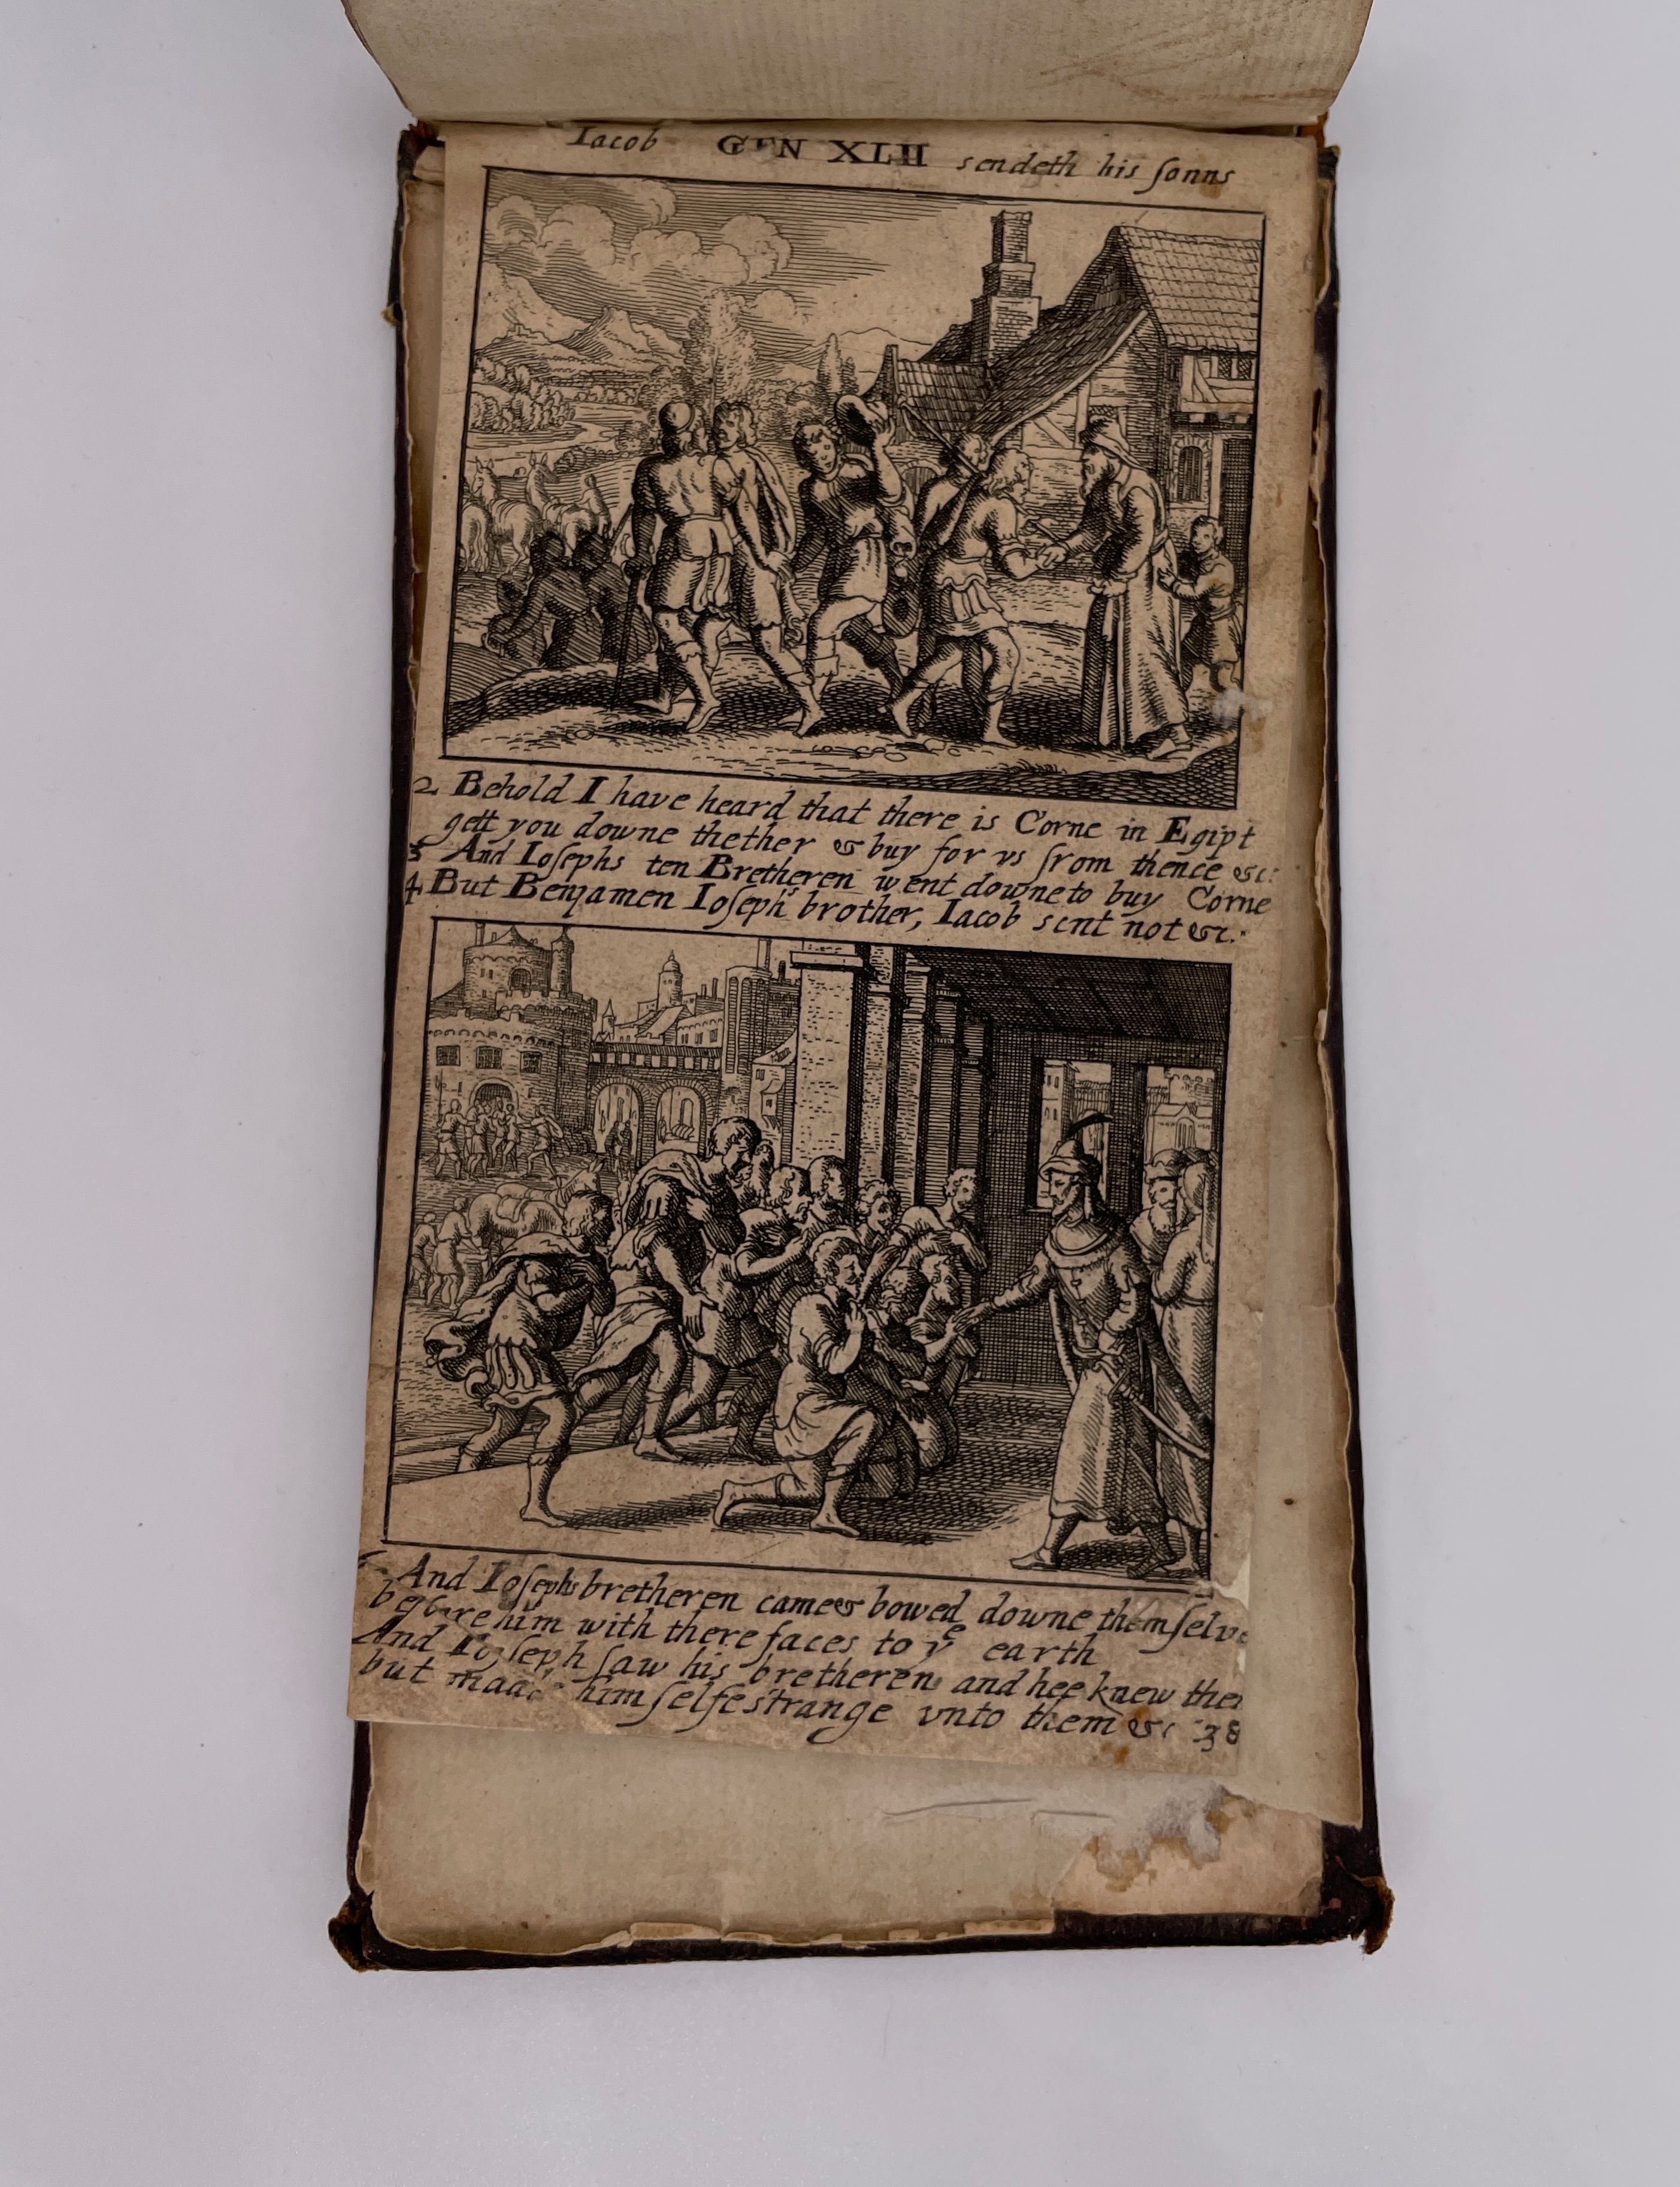 Iacob GEN XLII sendeth his ſonns
2 Behold I have heard that there is Corne in Egipt
gett you downe thether & buy for vs from thence &c:
3 And Ioſephs ten Bretheren went downe to buy Corne
4 But Benjamen Ioſephs brother, Iacob sent not &c.
And Ioſephs bretheren came & bowed downe themſelve
before him with there faces to yᵉ earth
And Ioſeph ſaw his bretheren and hee knew
but made himſelfe strange vnto them &c 38